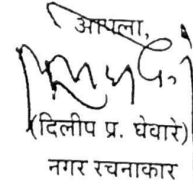 आपला,
(दिलीप प्र. घेवारे)
नगर रचनाकार